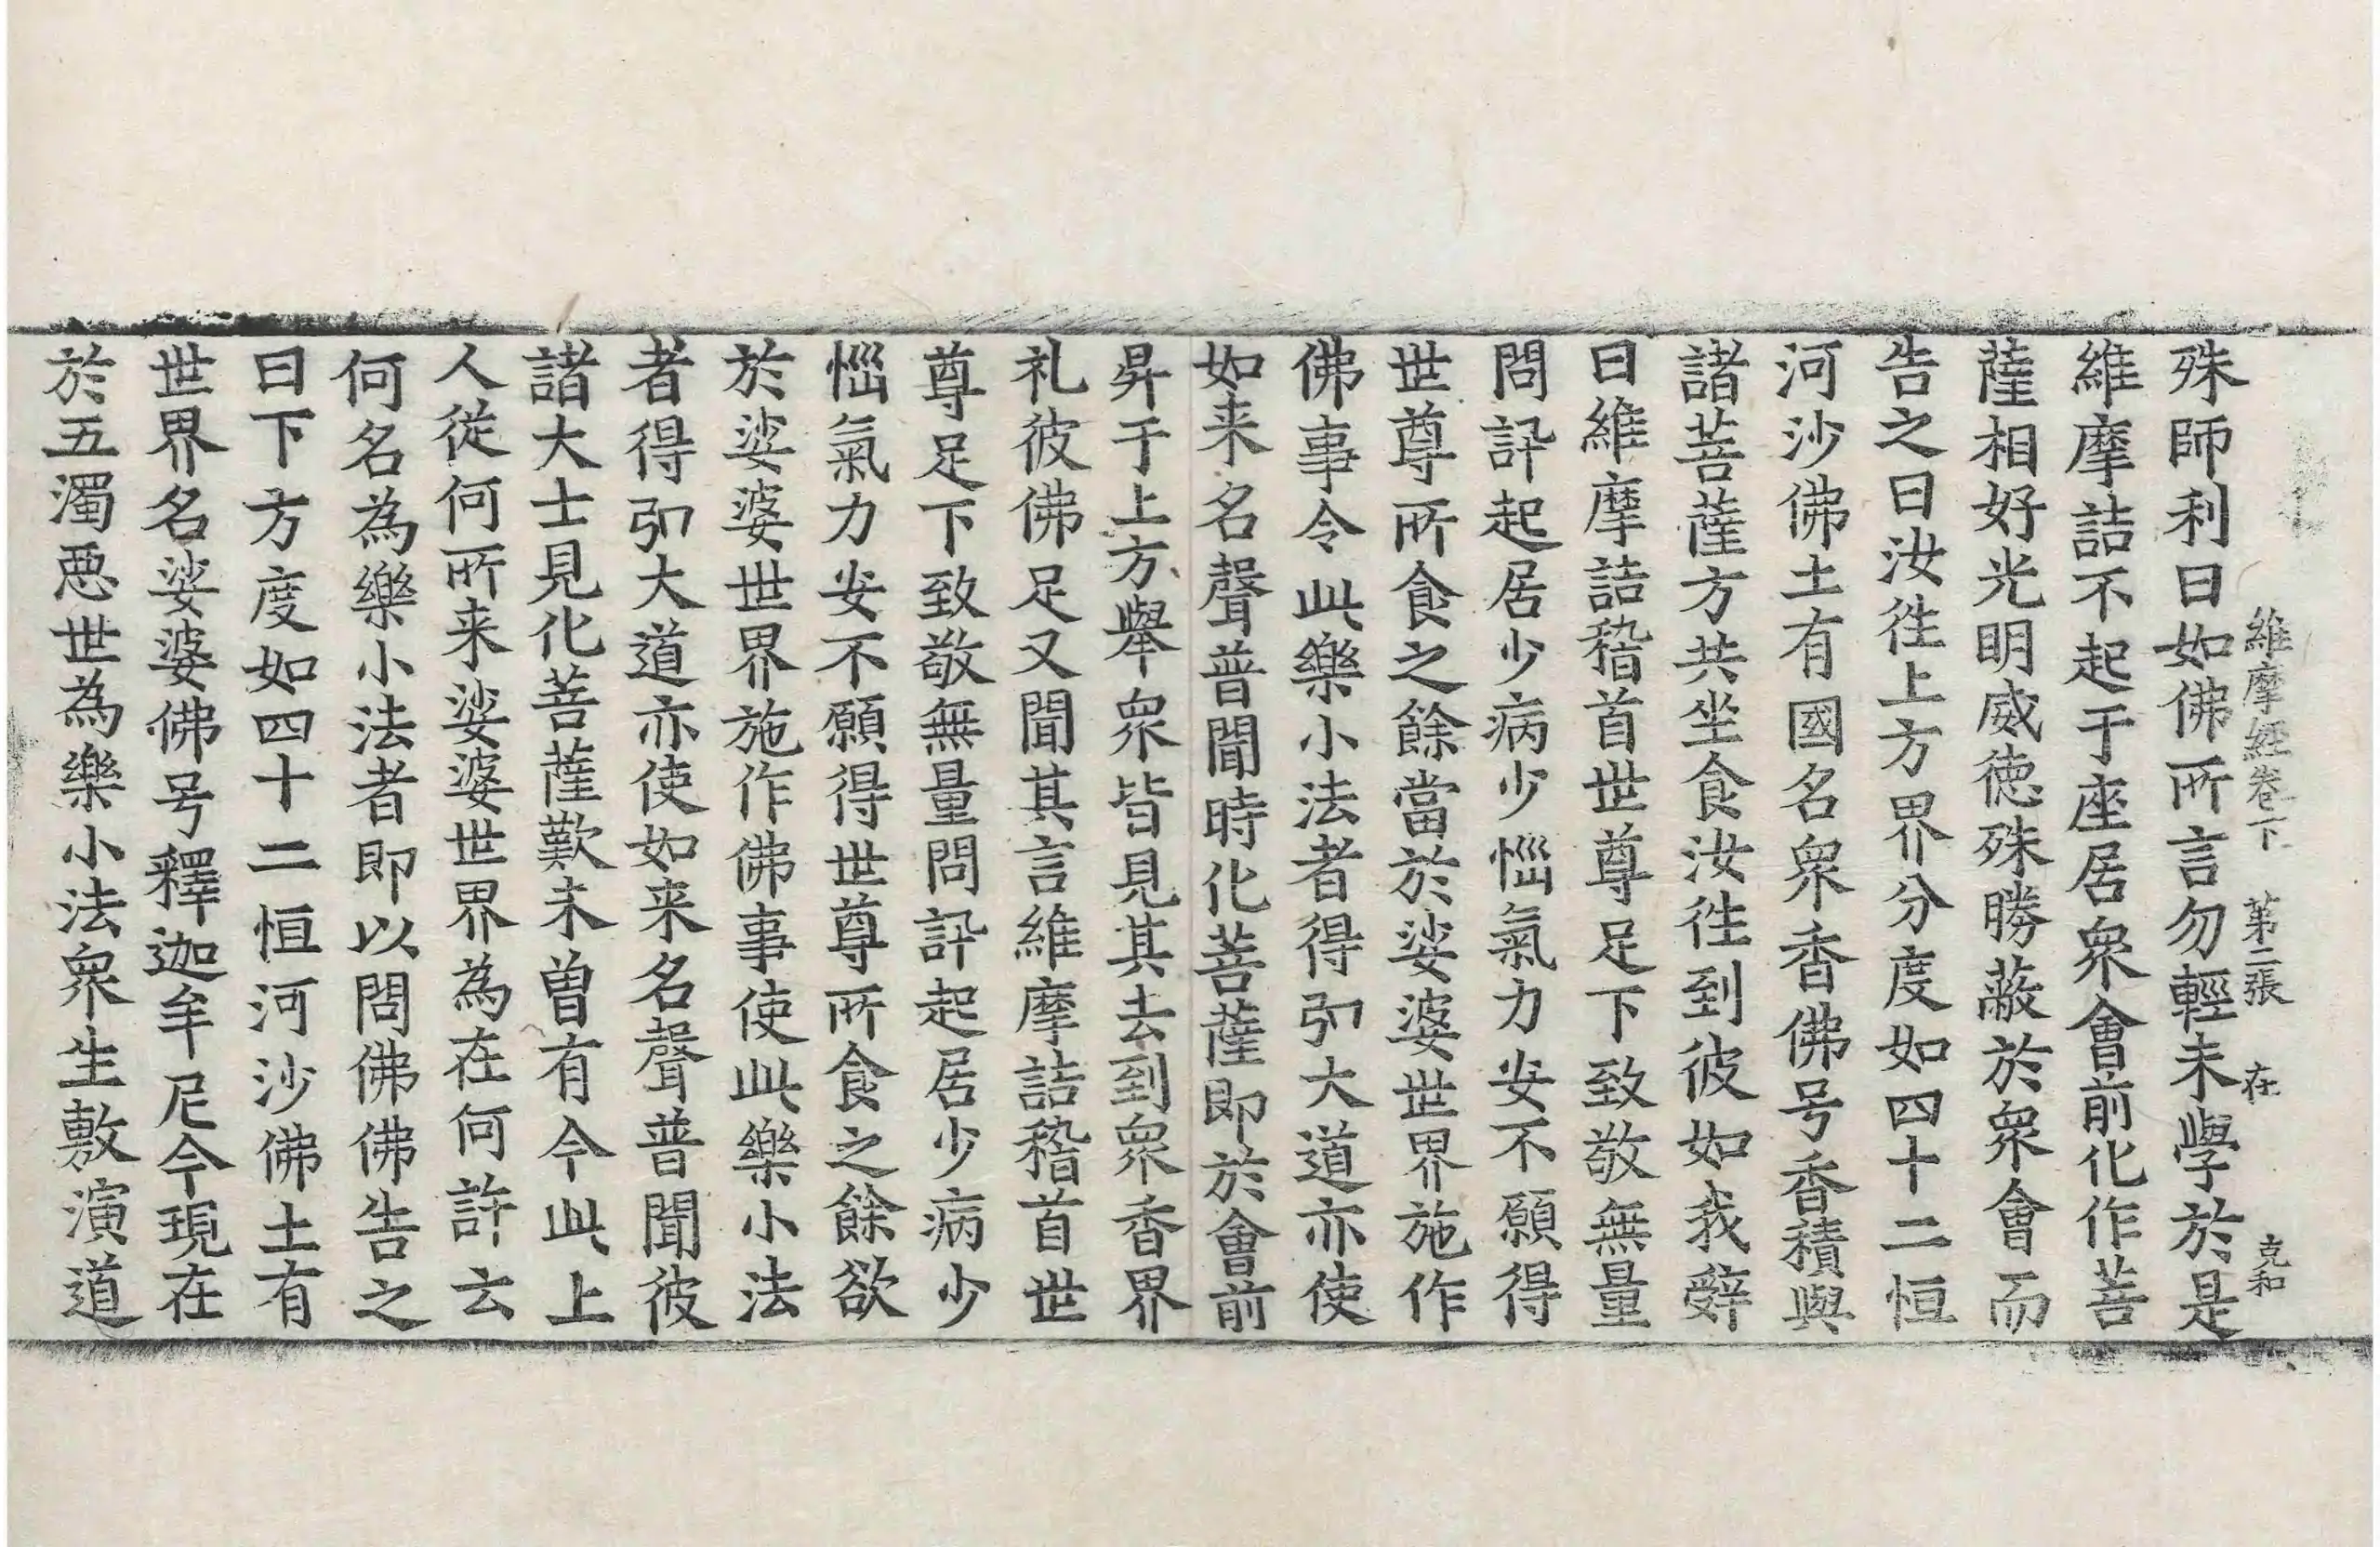 維摩經卷下　第二張　在　克和
殊師利曰如佛所言勿輕未學於是
維摩詰不起于座居衆會前化作菩
薩相好光明威徳殊勝蔽於衆會而
告之曰汝徃上方界分度如四十二恒
河沙佛土有國名衆香佛号香積與
諸菩薩方共坐食汝徃到彼如我辝
曰維摩詰稽首世尊足下致敬無量
問訊起居少病少惱氣力安不願得
世尊所食之餘當於娑婆世界施作
佛事令此樂小法者得弘大道亦使
如来名聲普聞時化菩薩即於會前
昇于上方舉衆皆見其去到衆香界
礼彼佛足又聞其言維摩詰稽首世
尊足下致敬無量問訊起居少病少
惱氣力安不願得世尊所食之餘欲
於娑婆世界施作佛事使此樂小法
者得弘大道亦使如来名聲普聞彼
諸大士見化菩薩歎未曽有今此上
人從何所来娑婆世界為在何許云
何名為樂小法者即以問佛佛告之
曰下方度如四十二恒河沙佛土有
世界名娑婆佛号釋迦牟尼今現在
於五濁惡世為樂小法衆生敷演道